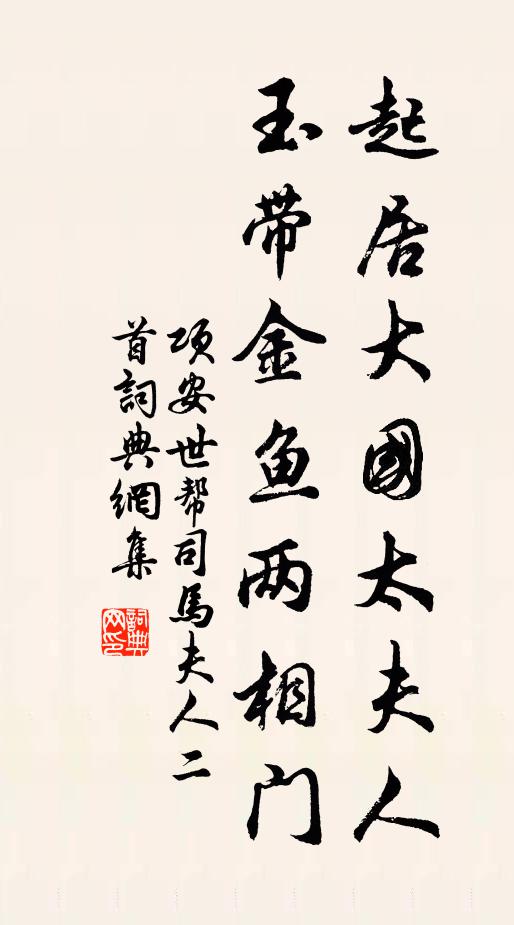 起居大國太夫人
玉带金鱼两相门
项安世帮司馬夫人二
首詞典網集
詞典网印